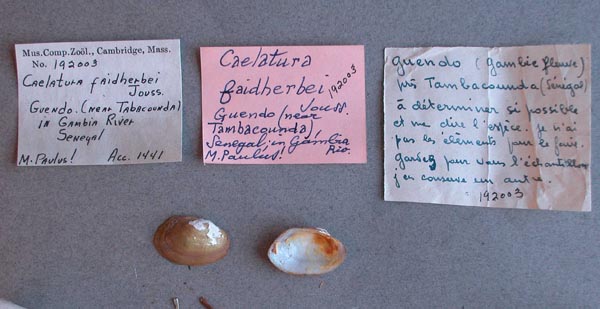 Mus.Comp.Zoöl., Cambridge, Mass.
No. 192003
Caelatura faidherbei
Jouss.
Guendo. (near Tabacounda)
in Gambia River
Senegal
M. Paulus! Acc. 1441
Caelatura
faidherbei
192003
Jouss.
Guendo (near
Tambacounda)
Senegal: in Gambia
M. Paulus! Rio.
guendo (gambie fleuve)
près Tambacounda (Sénégal)
à déterminer si possible
et me dire l'espèce. je n'ai
pas les éléments pour le faire.
gardez pour vous l'échantillon
j'en conserve un autre.
192003